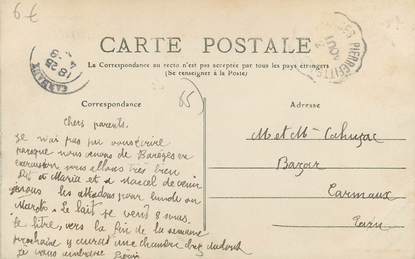 6€
CARTE POSTALE
La Correspondance au recto n'est pas acceptée par tous les pays étrangers
(Se renseigner à la Poste)
PIERREFITTE
CARMAUX
18 25
Correspondance
Adresse
65
Chers parents.
je n'ai pas pu vous écrire
parceque nous avons de Barèges en
excursion nous allons très bien
Dit à Maria et a Marcel de venir
nous les attendons pour lundi ou
Mardi. Le lait se vend 8 sous
le litre, vers la fin de la semaine
prochaine y aurait une chambre chez
je vous embrasse
M et Mme Cahuzac
Bazar
Carmaux
Tarn